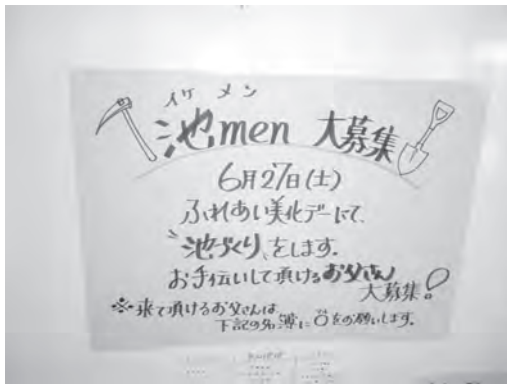 イケ メン
池men 大募集
6月27日(土)
ふれあい美化デーにて、
"池づくり"をします。
お手伝いして頂けるお父さん
大募集!
※来て頂けるお父さんは
下記の名簿に○をお願いします。